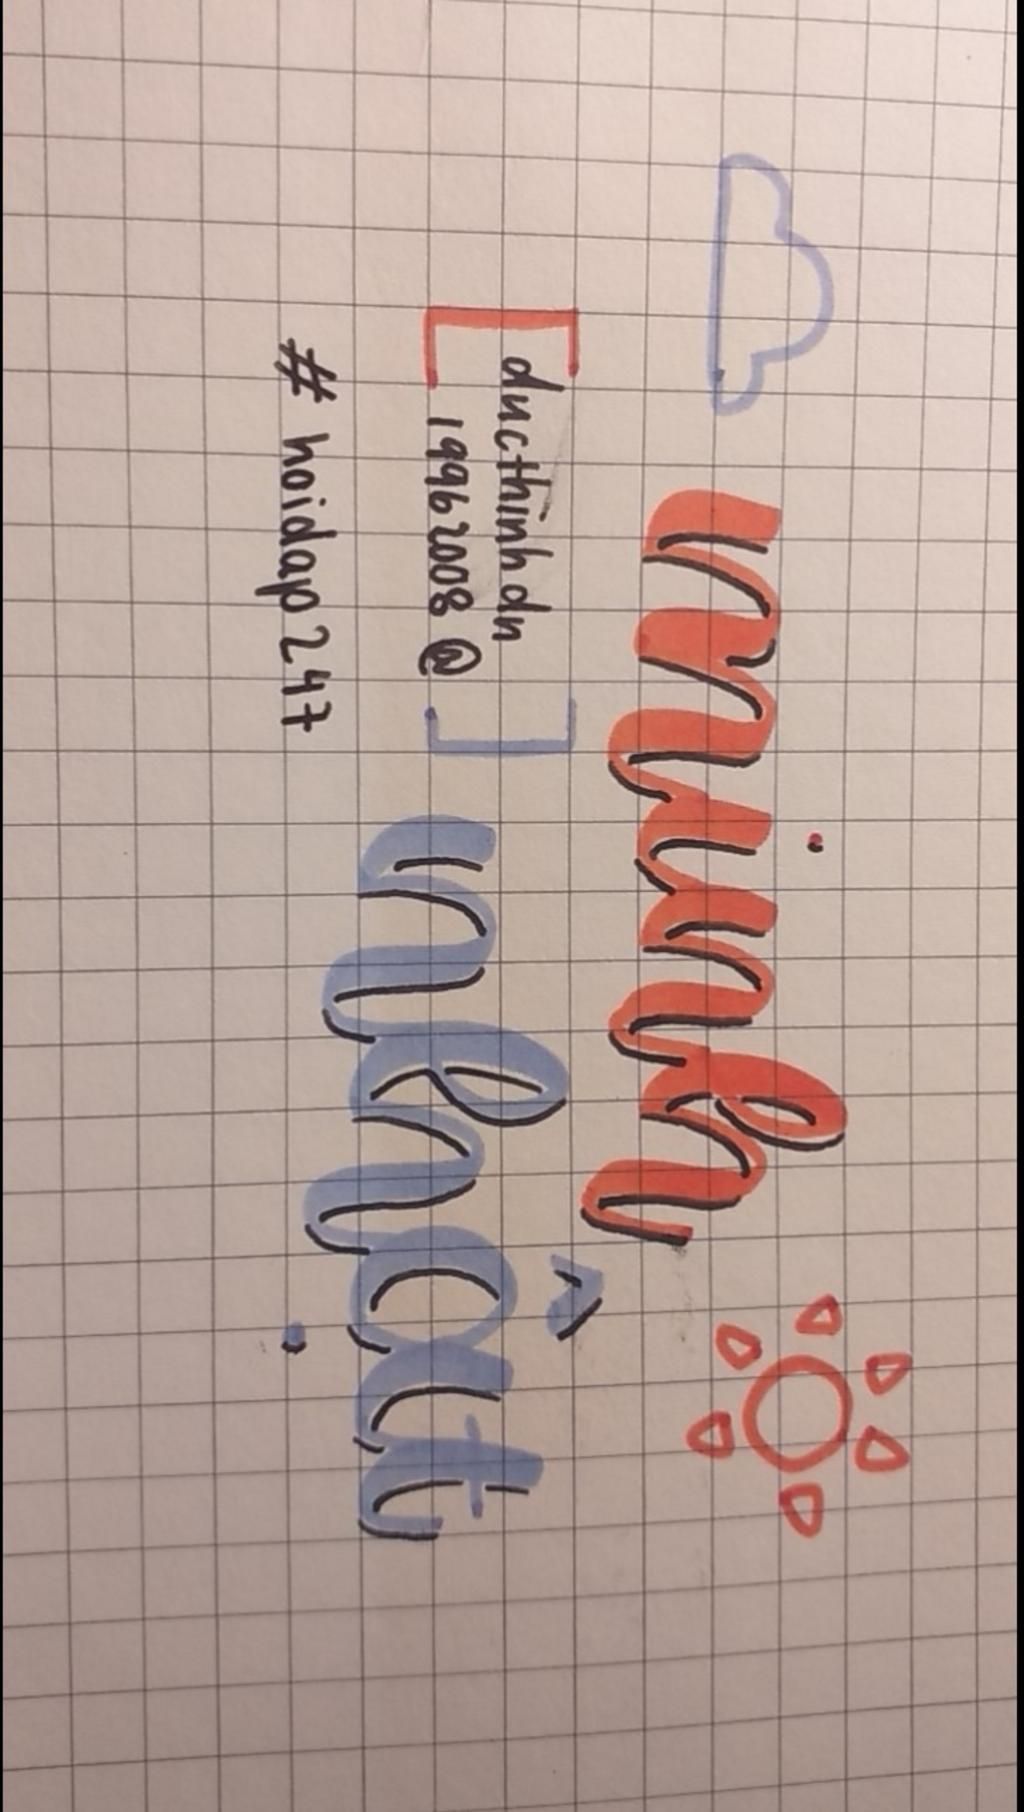 minh
nhật
[ducthinhdn
19962008@]
#hoidap247